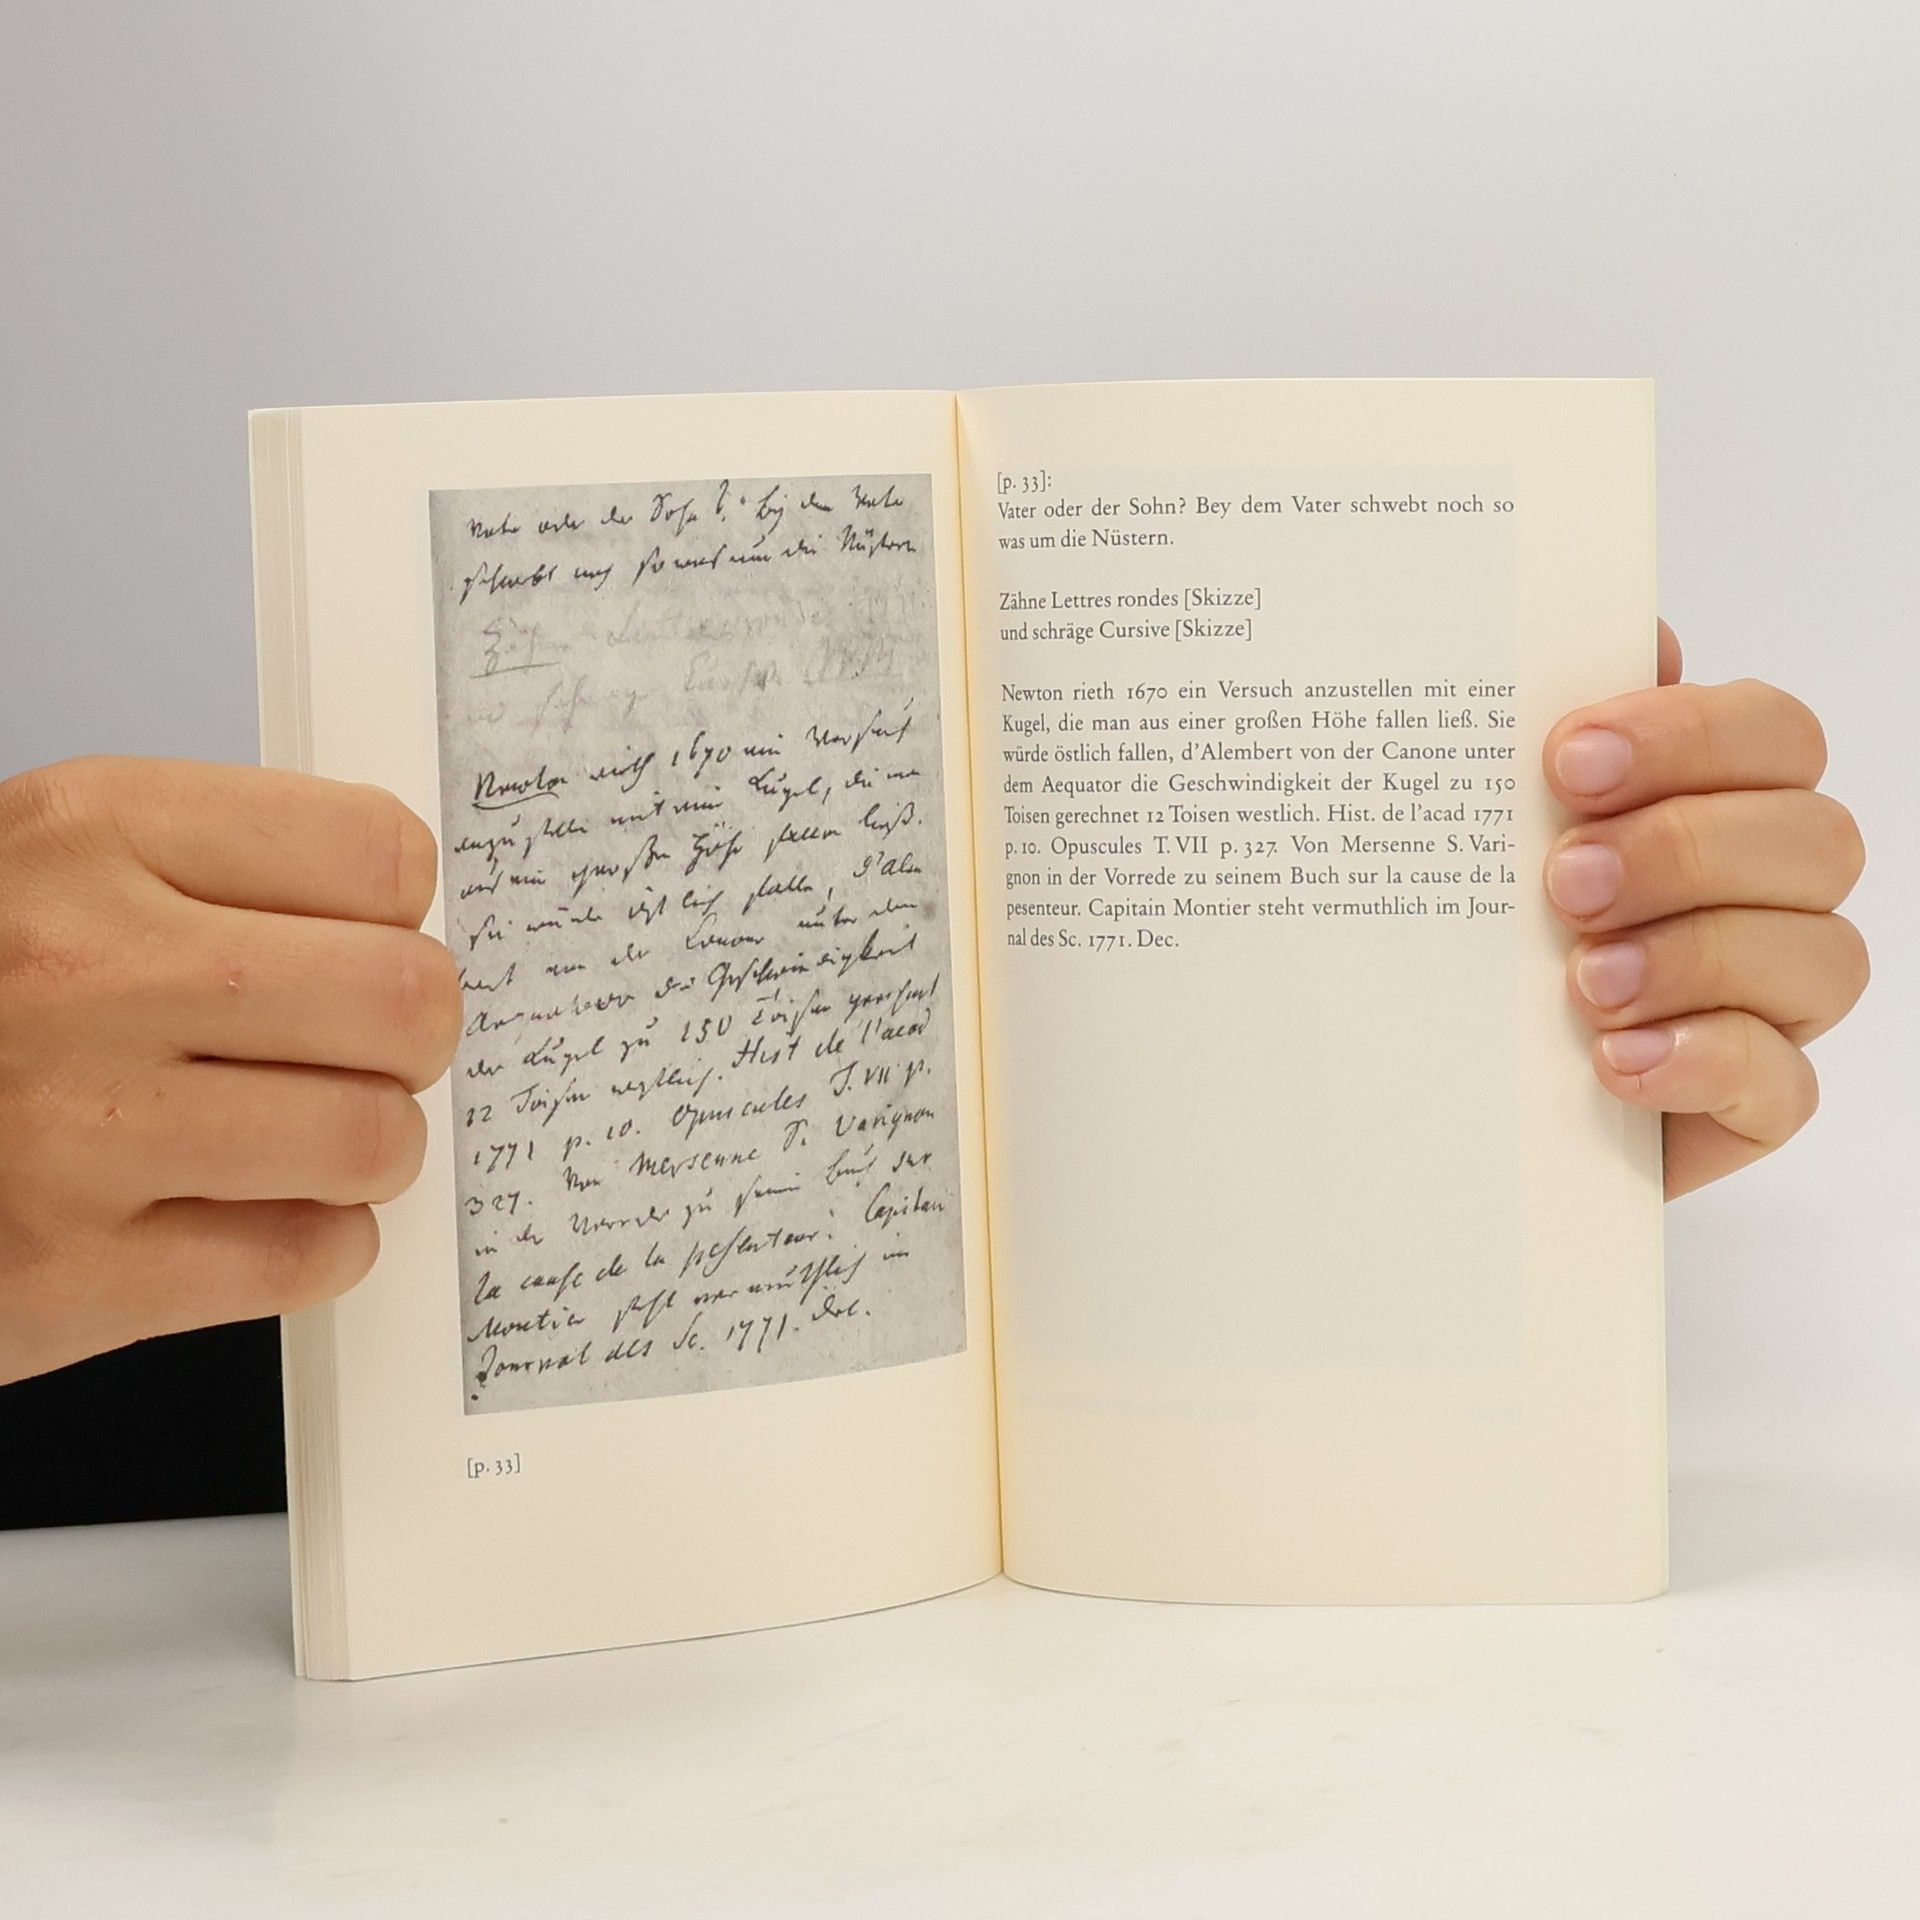 Vater oder der Sohn? Bey dem Vater
schwebt noch so was um die Nüstern
Zähne Lettres rondes
und schräge Cursive
Newton rieth 1670 ein Versuch
anzustellen mit einer Kugel, die man
aus einer großen Höhe fallen ließ.
Sie würde östlich fallen, d'Alem
bert von der Canone unter dem
Aequator die Geschwindigkeit
der Kugel zu 150 Toisen gerechnet
12 Toisen westlich. Hist de l'acad
1771 p. 10. Opuscules T. VII p.
327. Von Mersenne S. Varignon
in der Vorrede zu seinem Buch sur
la cause de la pesenteur. Capitain
Montier steht vermuthlich im
Journal des Sc. 1771. Dec.
[p. 33]
[p. 33]:
Vater oder der Sohn? Bey dem Vater schwebt noch so
was um die Nüstern.
Zähne Lettres rondes [Skizze]
und schräge Cursive [Skizze]
Newton rieth 1670 ein Versuch anzustellen mit einer
Kugel, die man aus einer großen Höhe fallen ließ. Sie
würde östlich fallen, d'Alembert von der Canone unter
dem Aequator die Geschwindigkeit der Kugel zu 150
Toisen gerechnet 12 Toisen westlich. Hist. de l'acad 1771
p. 10. Opuscules T. VII p. 327. Von Mersenne S. Vari-
gnon in der Vorrede zu seinem Buch sur la cause de la
pesenteur. Capitain Montier steht vermuthlich im Jour-
nal des Sc. 1771. Dec.